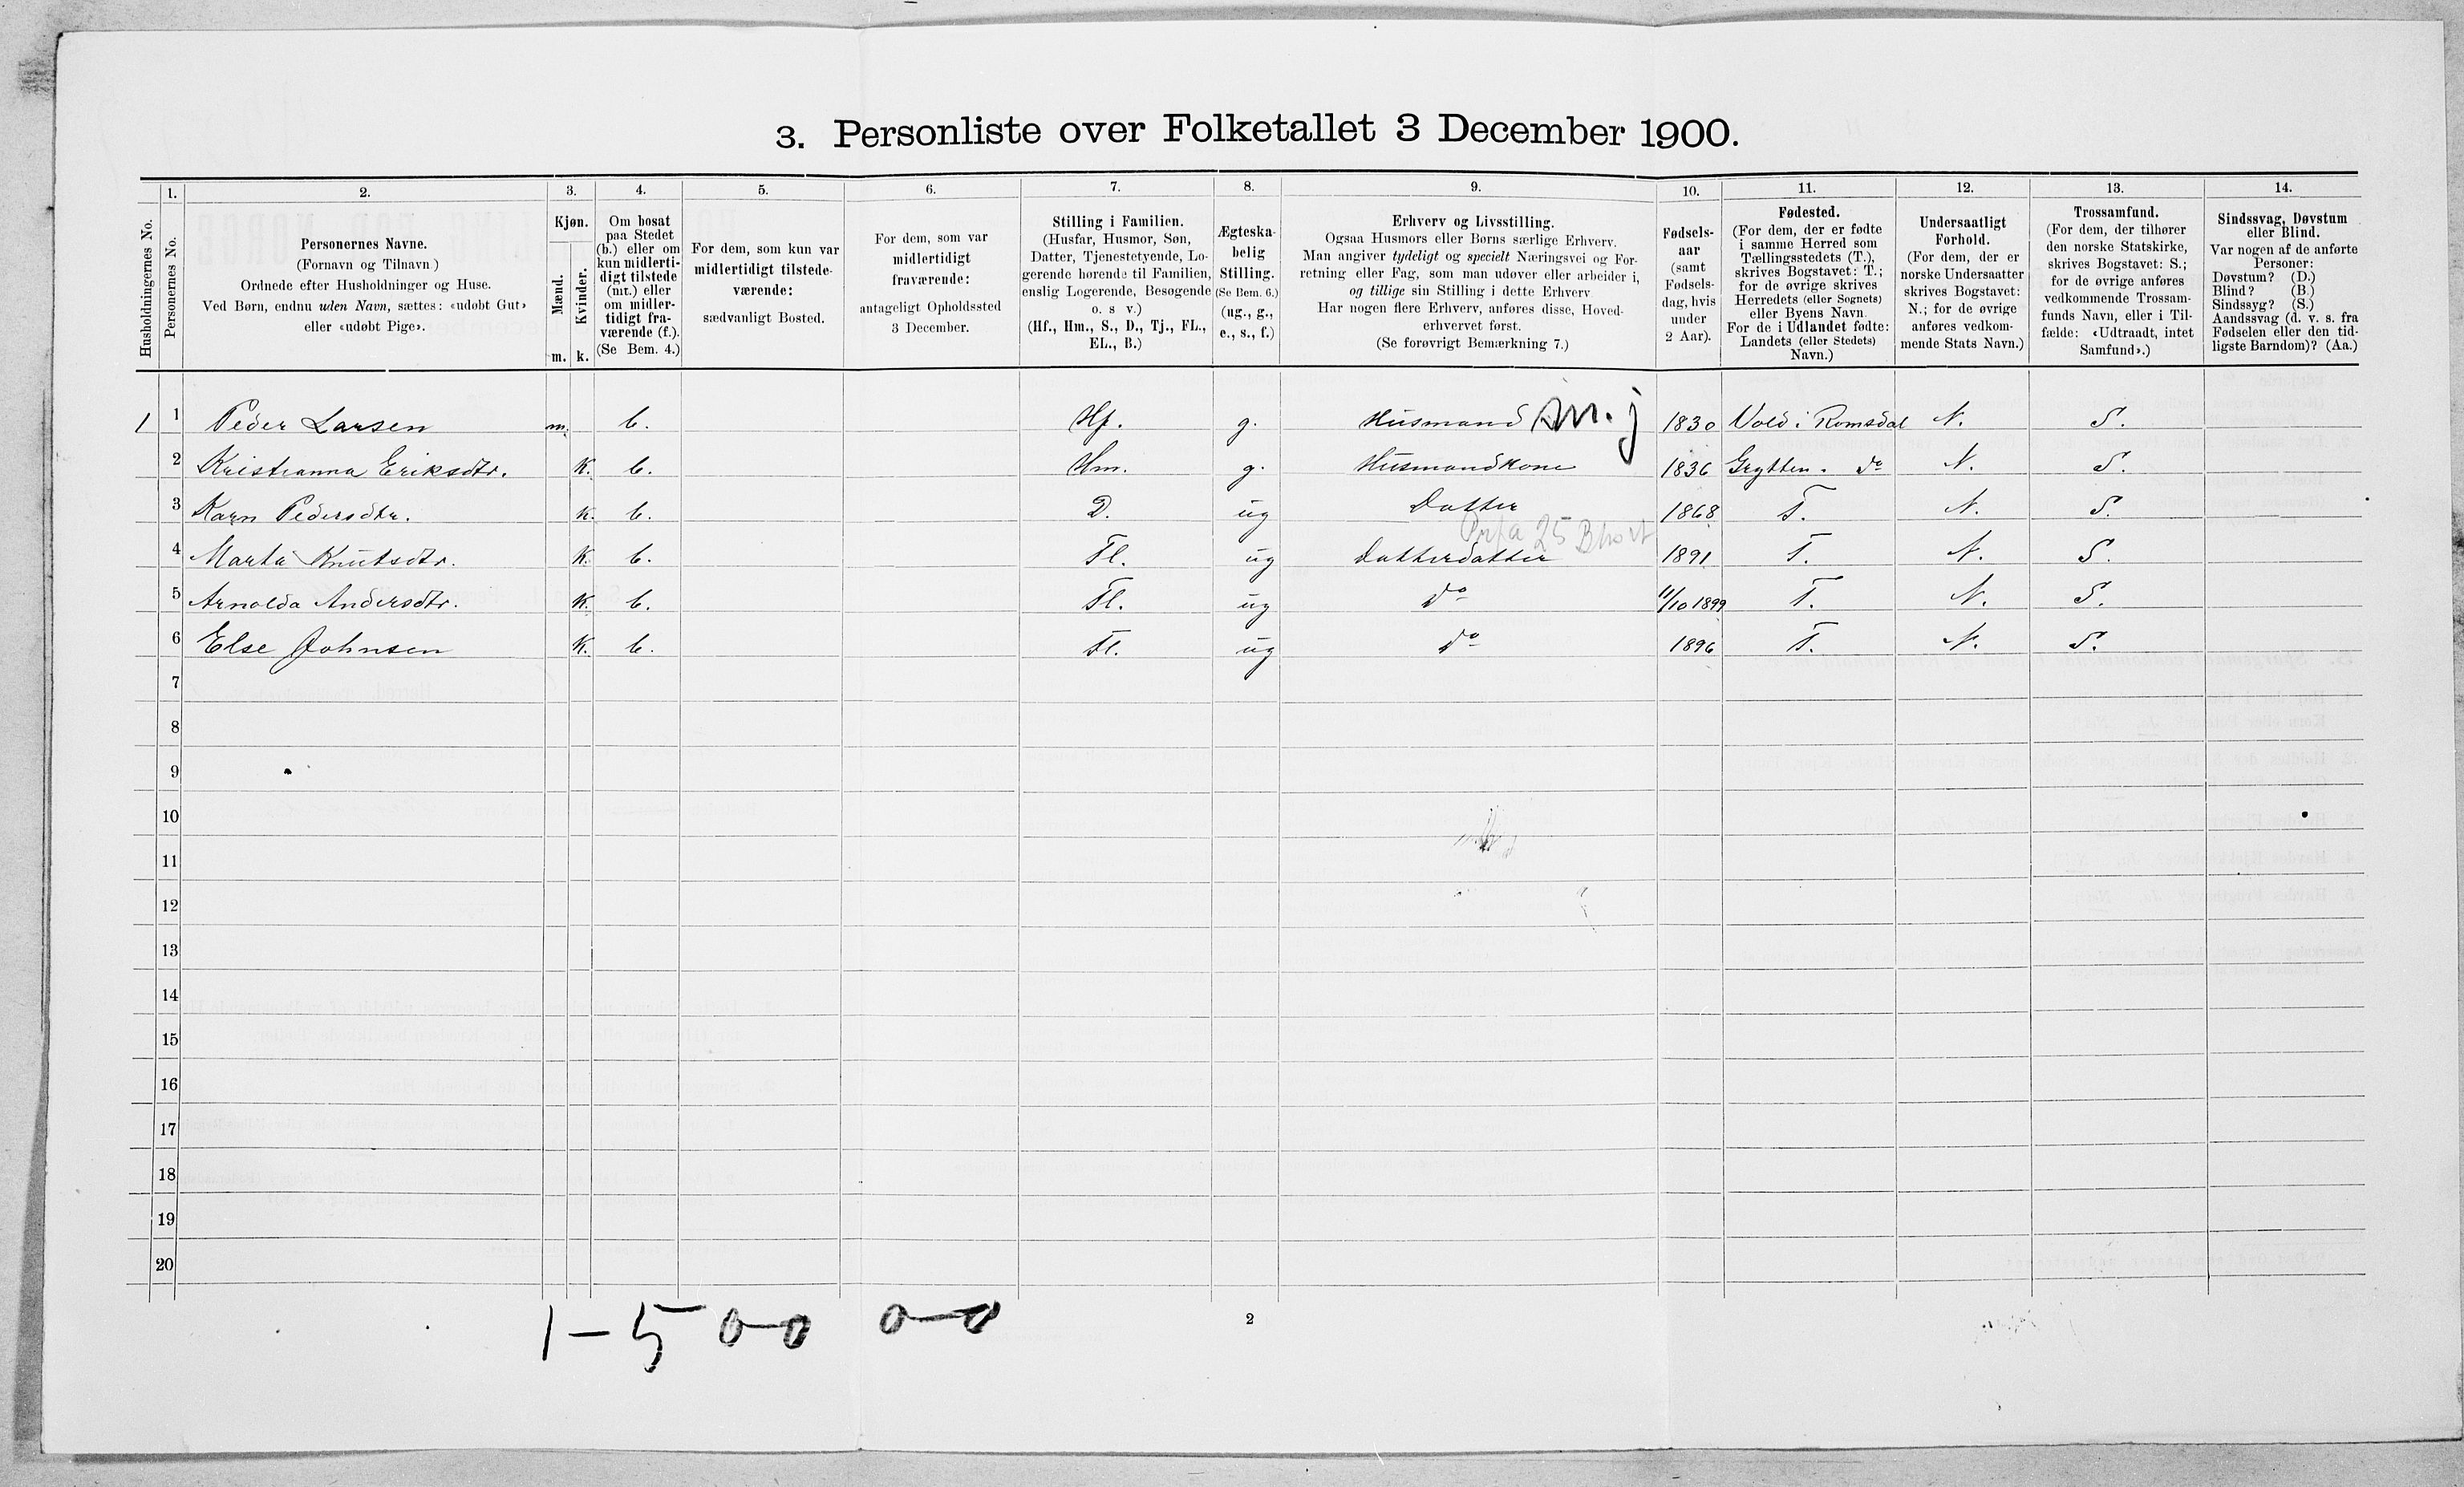 3. Personliste over Folketallet 3 December 1900.
1. 2. 3. 4. 5. 6. 7. 8. 9. 10. 11. 12. 13. 14.
Husholdningernes No.
Personernes No.
Personernes Navne.
(Fornavn og Tilnavn.)
Ordnede efter Husholdninger og Huse.
Ved Børn, endnu uden Navn, sættes: «udøbt Gut»
eller «udøbt Pige».
Kjøn.
Mænd.
Kvinder.
m. k.
Om bosat
paa Stedet
(b.) eller om
kun midlerti-
digt tilstede
(mt.) eller
om midler-
tidigt fra-
værende (f.).
(Se Bem. 4.)
For dem, som kun var
midlertidigt tilstede-
værende:
sædvanligt Bosted.
For dem, som var
midlertidigt
fraværende:
antageligt Opholdssted
3 December.
Stilling i Familien.
(Husfar, Husmor, Søn,
Datter, Tjenestetyende, Lo-
gerende hørende til Familien,
enslig Logerende, Besøgende
o. s v.)
(Hf., Hm., S., D., Tj., FL.,
EL., B.)
Ægteska-
belig
Stilling.
(Se Bem. 6.)
(ug., g.,
e., s., f.)
Erhverv og Livsstilling.
Ogsaa Husmors eller Børns særlige Erhverv.
Man angiver tydeligt og specielt Næringsvei og For-
retning eller Fag, som man udøver eller arbeider i,
og tillige sin Stilling i dette Erhverv
Har nogen flere Erhverv, anføres disse, Hoved-
erhvervet først.
(Se forøvrigt Bemærkning 7.)
Fødsels-
aar
(samt
Fødsels-
dag, hvis
under
2 Aar).
Fødested.
(For dem, der er fødte
i samme Herred som
Tællingsstedets (T.),
skrives Bogstavet: T.;
for de øvrige skrives
Herredets (eller Sognets)
eller Byens Navn.
For de i Udlandet fødte:
Landets (eller Stedets)
Navn.)
Undersaatligt
Forhold.
(For dem, der er
norske Undersaatter
skrives Bogstavet:
N.; for de øvrige
anføres vedkom-
mende Stats Navn.)
Trossamfund.
(For dem, der tilhører
den norske Statskirke,
skrives Bogstavet: S.;
for de øvrige anføres
vedkommende Trossam-
funds Navn, eller i Til-
fælde: «Udtraadt, intet
Samfund».)
Sindssvag, Døvstum
eller Blind.
Var nogen af de anførte
Personer:
Døvstum? (D.)
Blind? (B.)
Sindssyg? (S.)
Aandssvag (d. v. s. fra
Fødselen eller den tid-
ligste Barndom)? (Aa.)
1 1 Peder Larsen m. b. Hf. g. Husmand m. j 1830 Vold i Romsdal N. S.
2 Kristianna Eriksdtr. K. b. Hm. g. Husmandkone 1836 Grytten. do N. S.
3 Karn Pedersdtr. K. b. D. ug Datter 1868 T. N. S.
25
4 Marta Knutsdtr. K. b. Fl. ug Datterdatter 1891 T. N. S.
5 Arnolda Andersdtr. K. b. Fl. ug do 11/10 1899 T. N. S.
6 Else Johnsen K. b. Fl. ug do 1896 T. N. S.
7
8
9
10
11
12
13
14
15
16
17
18
19
20
1 - 5 0-0 0-0
2